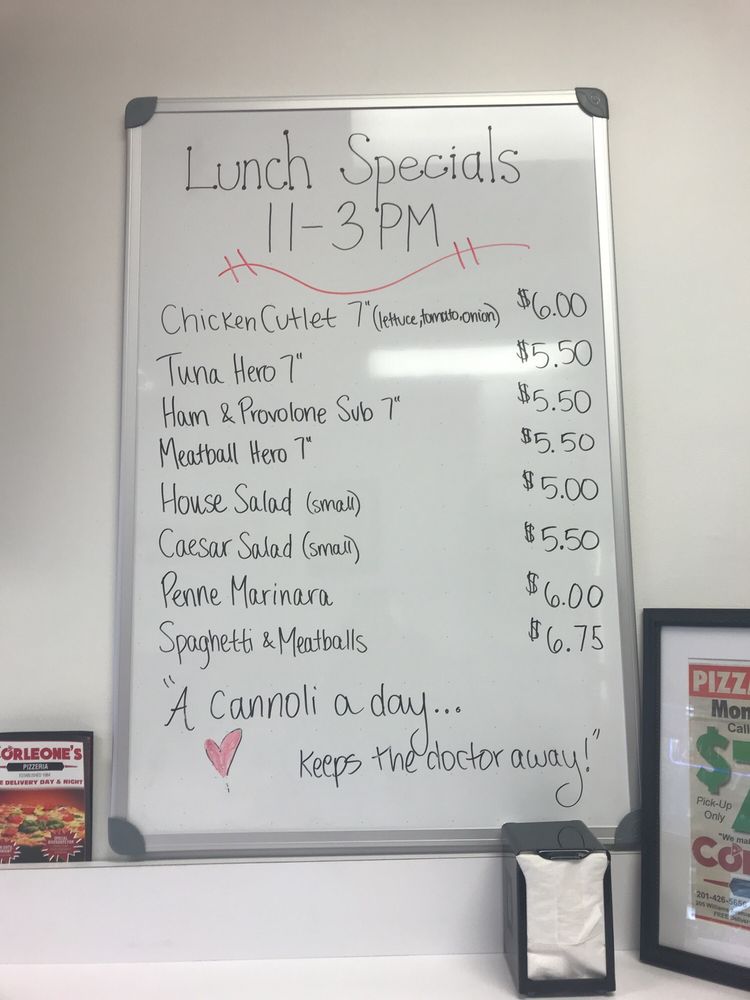 Lunch Specials
11-3 PM
Chicken Cutlet 7" (lettuce, tomato, onion) $6.00
Tuna Hero 7" $5.50
Ham & Provolone Sub 7" $5.50
Meatball Hero 7" $5.50
House Salad (small) $5.00
Caesar Salad (small) $5.50
Penne Marinara $6.00
Spaghetti & Meatballs $6.75
"A Cannoli a day...
keeps the doctor away!"
ORLEONE'S
PIZZERIA
E DELIVERY DAY & NIGHT
PIZZ
Mon
Call
$
Pick-Up
Only
"We ma
CO
201-426-565
FREE